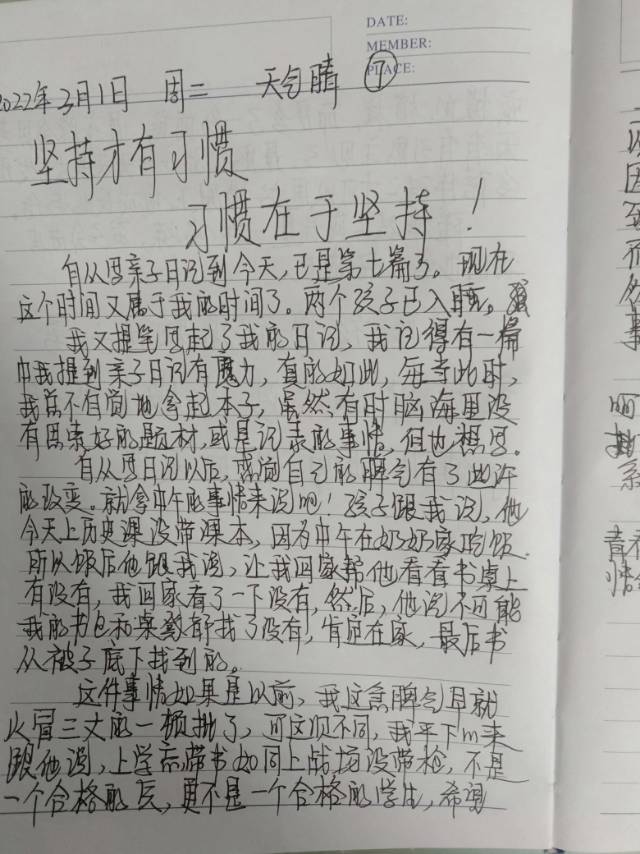 DATE:
MEMBER:
PLACE:
2022年3月1日 周二 天气晴 ⑦
坚持才有习惯
习惯在于坚持！
自从写亲子日记到今天，已是第七篇了。现在
这个时间又属于我的时间了。两个孩子已入睡。
我又提笔写起了我的日记，我记得有一篇
中我提到亲子日记有魔力，真的如此，每当此时，
我总不自觉地拿起本子，虽然有时脑海里没
有思索好的题材，或是记录的事情，但也想写。
自从写日记以后，感触自己的脾气有了些许
的改变。就拿中午的事情来说吧！孩子跟我说，他
今天上历史课没带课本，因为中午在奶奶家吃饭，
所以饭后他跟我说，让我回家帮他看看书桌上
有没有，我回家看了一下没有，然后，他说不可能
我的书包和桌都找了没有，肯定在家，最后书
从被子底下找到的。
这件事情如果是以前，我这急脾气早就
火冒三丈的一顿批了，可这次不同，我平下心来
跟他说，上学忘带书如同上战场没带枪，不是
一个合格的兵，更不是一个合格的学生，希望